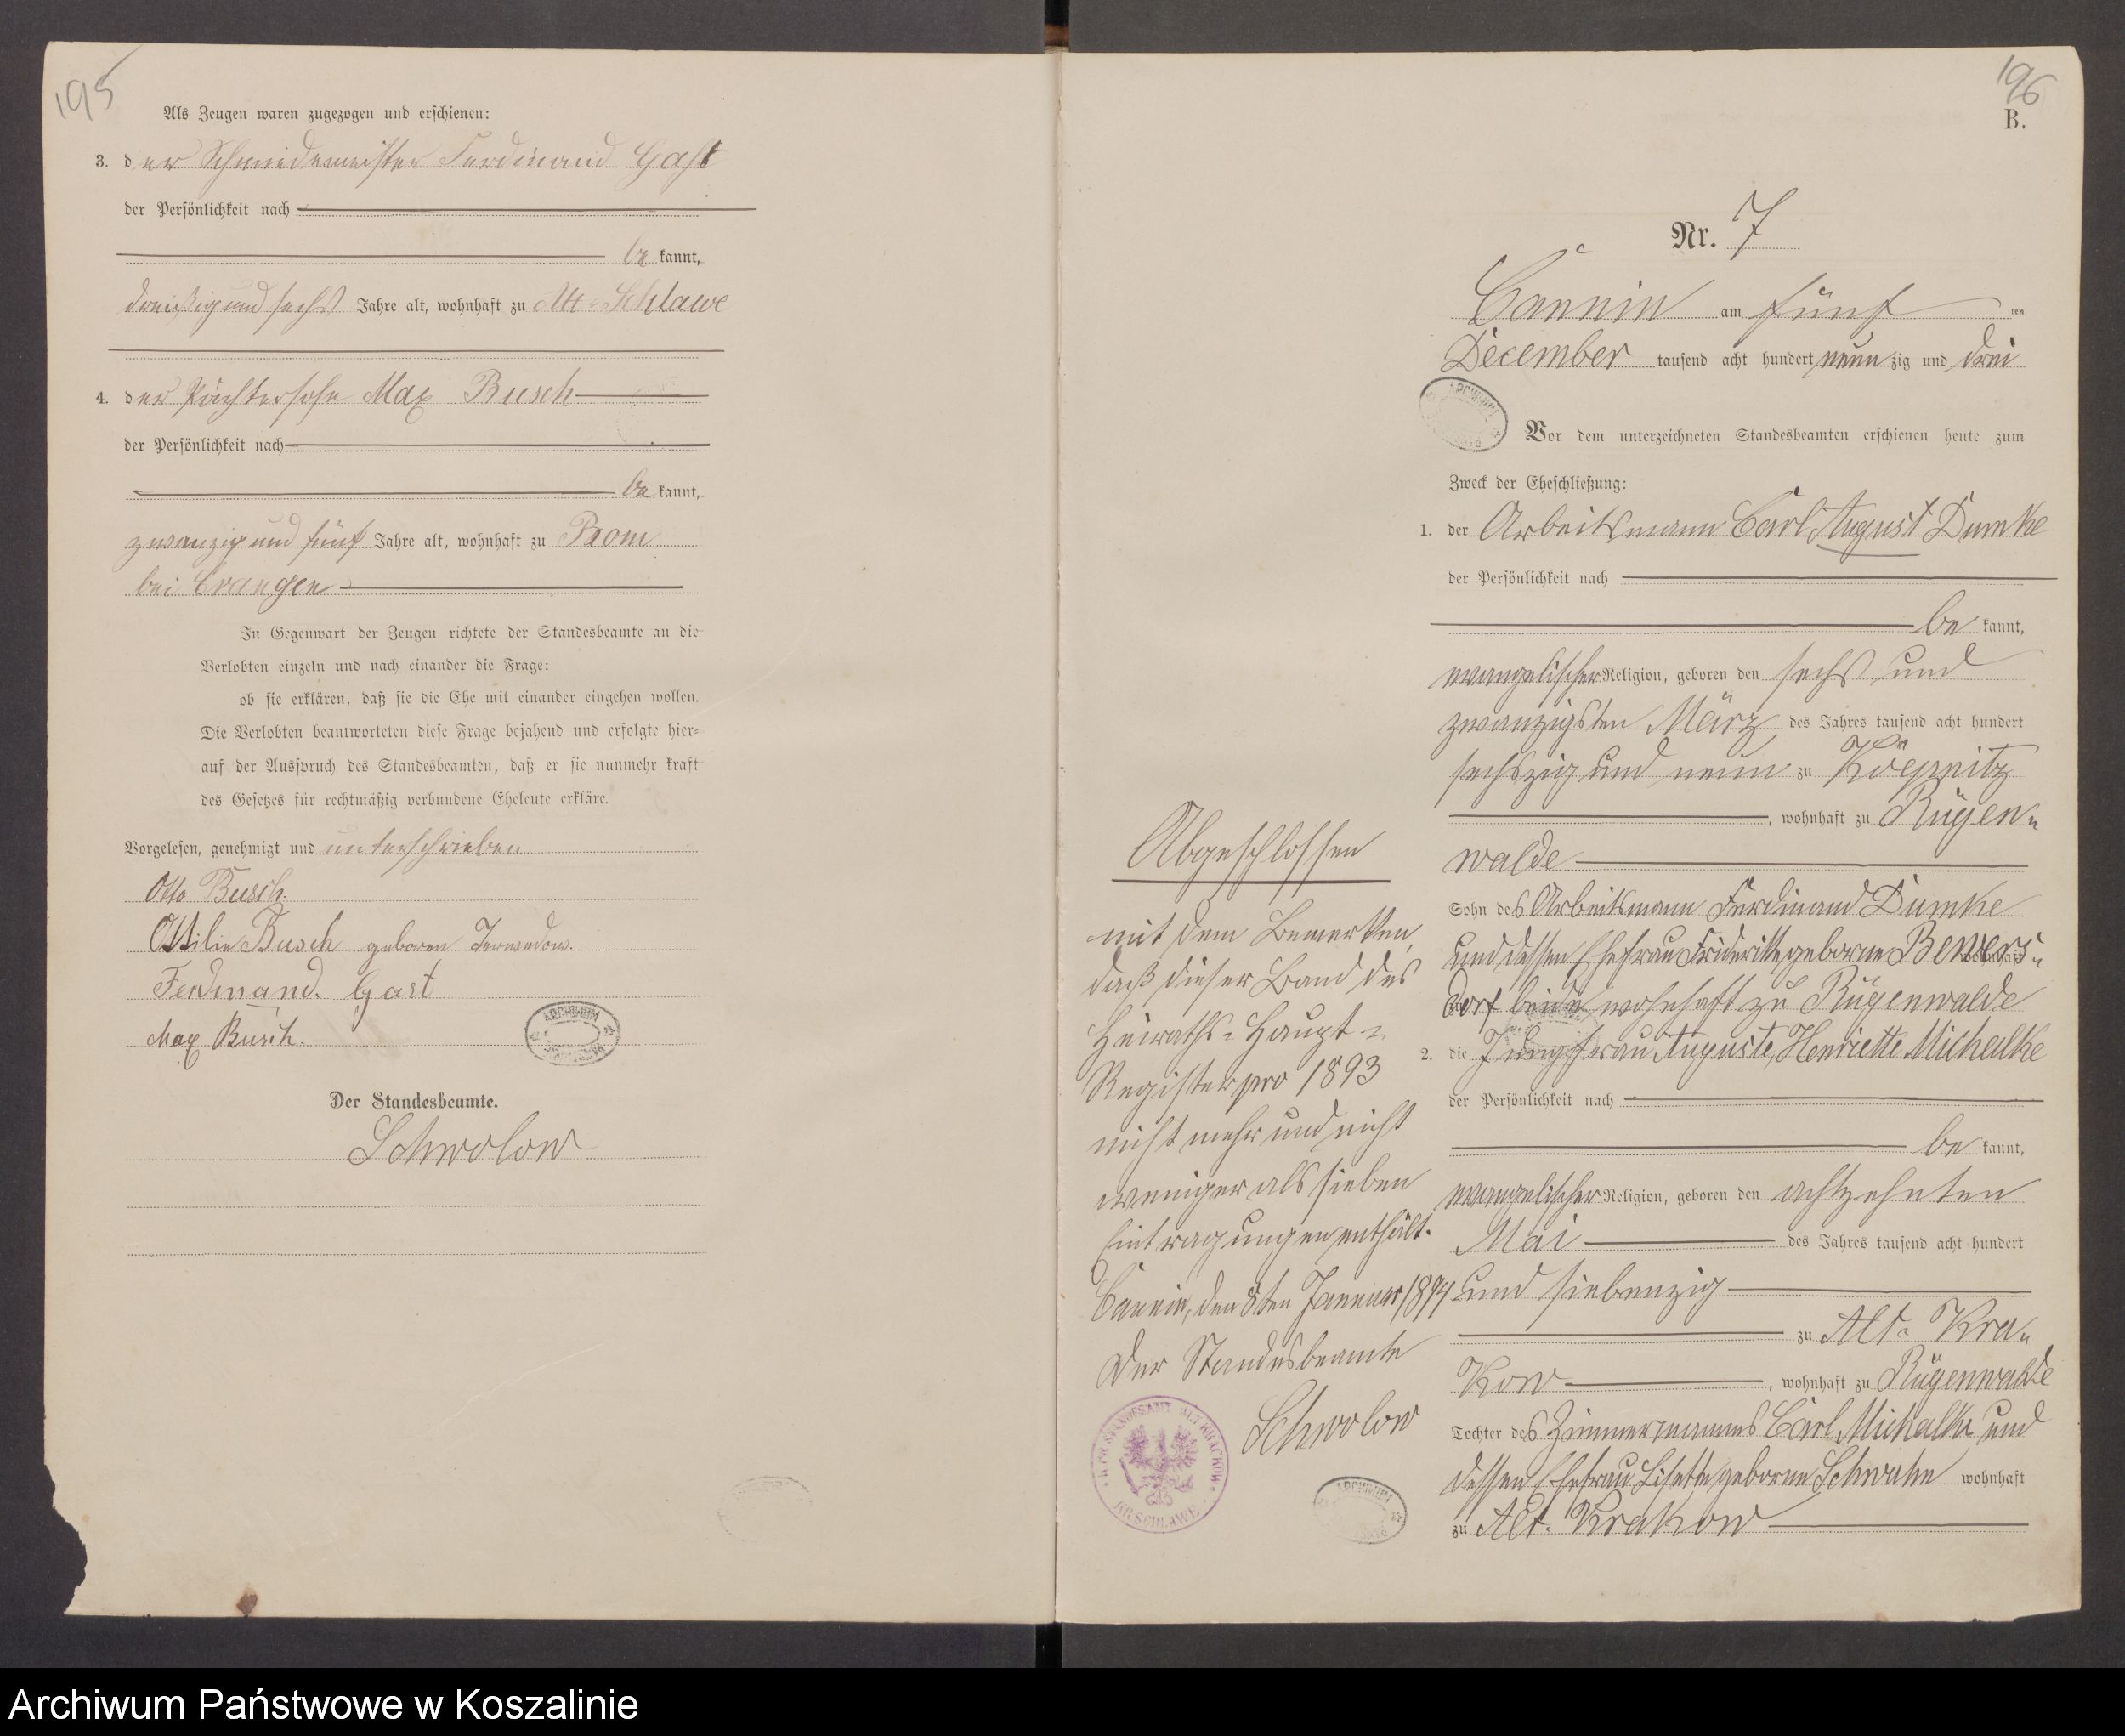 195
Als Zeugen waren zugezogen und erschienen:
3. der Schmiedemeister Ferdinand Gast
der Persönlichkeit nach
be kannt,
dreißig und sechs Jahre alt, wohnhaft zu Alt-Schlawe
4. der Pächtersohn Max Busch
der Persönlichkeit nach
be kannt,
zwanzig und fünf Jahre alt, wohnhaft zu
bei Crangen
In Gegenwart der Zeugen richtete der Standesbeamte an die
Verlobten einzeln und nach einander die Frage:
ob sie erklären, daß sie die Ehe mit einander eingehen wollen.
Die Verlobten beantworteten diese Frage bejahend und erfolgte hier-
auf der Ausspruch des Standesbeamten, daß er sie nunmehr kraft
des Gesetzes für rechtmäßig verbundene Eheleute erkläre.
Vorgelesen, genehmigt und unterschrieben
Otto Busch.
Ottilie Busch geboren
Ferdinand. Gast
Max Busch.
ARCHIWUM
Der Standesbeamte.
Schwolow
196
B.
Nr. 7
Cannin am fünf ten
December tausend acht hundert neun zig und drei
ARCHIWUM
Vor dem unterzeichneten Standesbeamten erschienen heute zum
Zweck der Eheschließung:
1. der Arbeitsmann Carl August Dumke
der Persönlichkeit nach
be kannt,
evangelischer Religion, geboren den sechs und
zwanzigsten März des Jahres tausend acht hundert
sechszig und neun zu Köpnitz
, wohnhaft zu Rügen-
walde
Sohn des Arbeitsmann Ferdinand Dumke
und dessen Ehefrau Friderike geborne Bewers-
dorf beide wohnhaft zu Rügenwalde
2. die Jungfrau Auguste, Henriette Michalke
der Persönlichkeit nach
be kannt,
evangelischer Religion, geboren den achtzehnten
Mai des Jahres tausend acht hundert
und siebenzig
zu Alt-Kra-
kow , wohnhaft zu Rügenwalde
Tochter des Zimmermannes Carl Michalke und
dessen Ehefrau Lisette geborne Schwahn wohnhaft
zu Alt-Krakow
Abgeschlossen
mit dem Bemerken,
daß dieser Band des
Heiraths-Haupt-
Register pro 1893
nicht mehr und nicht
weniger als sieben
Eintragungen enthält.
Cannin, den 8ten Januar 1894
Der Standesbeamte
Schwolow
K. PR. STANDESAMT ALT KRACKOW
KR SCHLAWE
ARCHIWUM
Archiwum Państwowe w Koszalinie